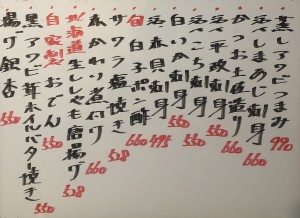 蒸しアワビつまみ 990
活〆しまあじ刺身 660
かつお土佐造り 660
活〆平政刺身 550
活〆いこち刺身 550
白いか刺身 550
活〆赤貝刺身 495
旬 白子ポン酢 660
サワラ塩焼き 528
赤かれい煮付け 660
北海道生ししゃも唐揚げ 528
自家製おでん 550
黒アワビ茸ホイルバター焼き
揚げ銀杏 550